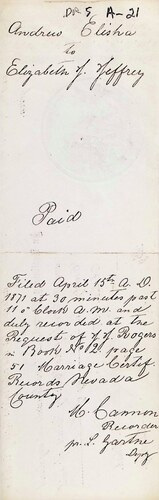 DR 5 A-21
Andrew Elisha
to
Elizabeth Y. Jeffrey
Paid
Filed April 15th A. D.
1871 at 30 minutes past
11 o'Clock A.M. and
duly recorded at the
Request of J. J. Rogers
in Book No 12 page
51 Marriage Certif.
Records Nevada
County
K. Cannon
Recorder
pr. L. Gartne
Depy